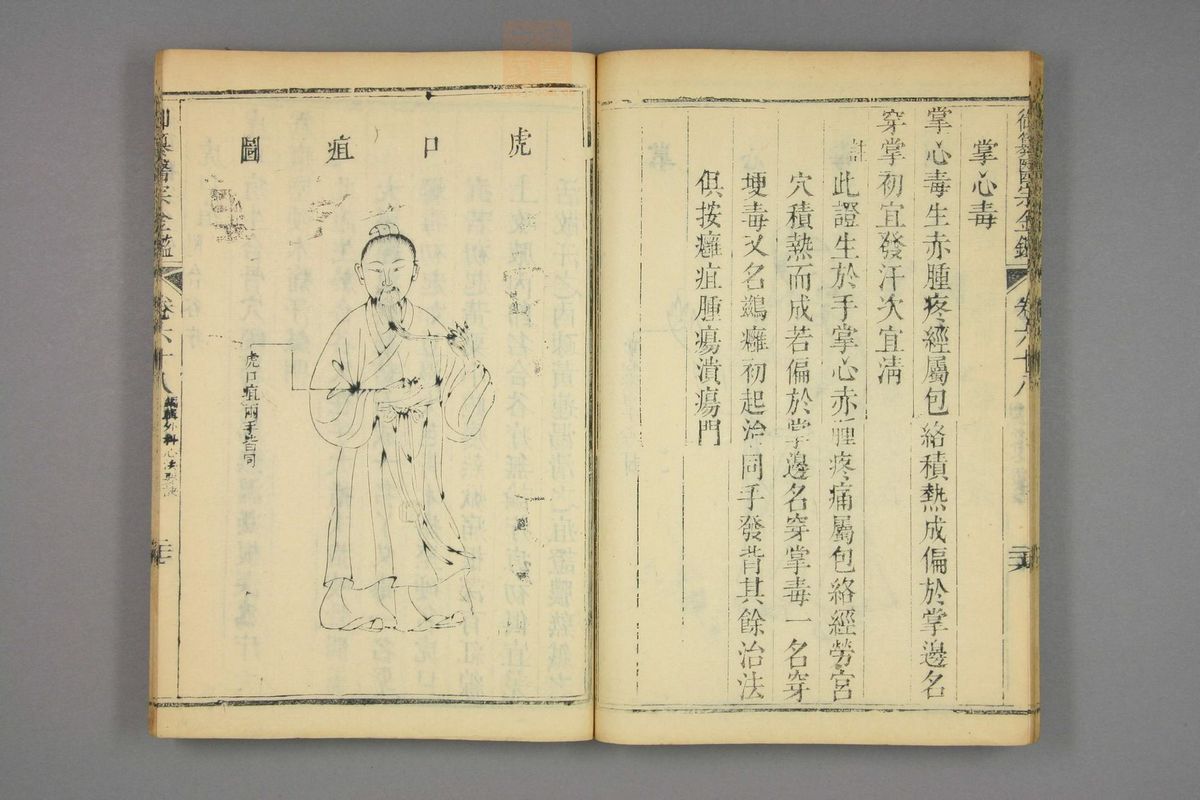 掌心毒
掌心毒生赤腫疼經屬包絡積熱成偏於掌邊名
穿掌初宜發汗次宜清
註此證生於手掌心赤腫疼痛屬包絡經勞宮
穴積熱而成若偏於掌邊名穿掌毒一名穿
埂毒又名鷁癰初起治同手發背其餘治法
俱按癰疽腫瘍潰瘍門
御纂醫宗金鑑 卷六十八
虎口疽圖
虎口疽兩手皆同
御纂醫宗金鑑 卷六十八 編輯外科心法要訣